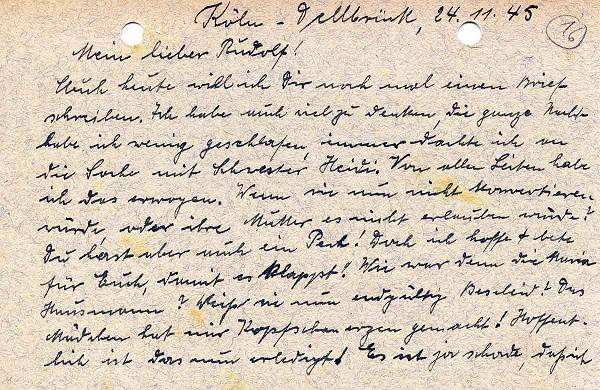 Köln-Dellbrück, 24.11.45
16
Mein lieber Rudolf!
Auch heute will ich Dir noch mal einen Brief
schreiben. Ich habe auch viel zu denken, die ganze Nacht
habe ich wenig geschlafen, immer dachte ich an
die Sache mit Schwester Heidi. Von allen Seiten habe
ich das erwogen. Wenn sie nun nicht konvertieren
würde, oder ihre Mutter es nicht erlauben würde?
Du hast aber auch ein Pech! Doch ich hoffe + bete
für Euch, damit es klappt! Wie war denn die Maria
Hausmann? Weiß sie nun endgültig Bescheid? Das
Mädchen hat mir Kopfschmerzen gemacht! Hoffent-
lich ist das nun erledigt! Es ist ja schade, daß ich